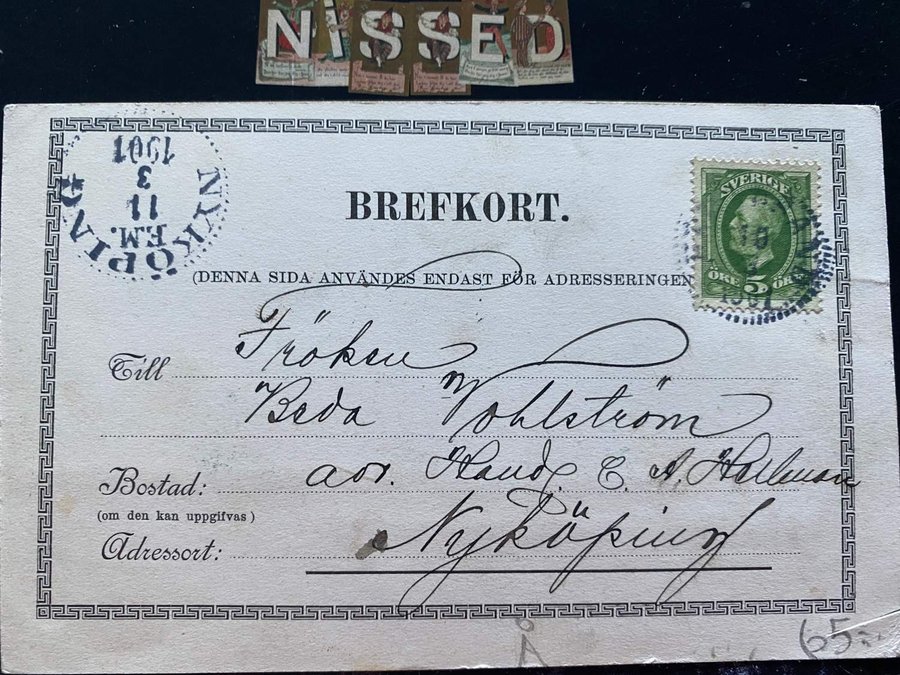 NISSED
NYKÖPING
1901
3
11
E.M.
BREFKORT.
SVERIGE
ÖRE 5 ÖRE
10
1901
(DENNA SIDA ANVÄNDES ENDAST FÖR ADRESSERINGEN
Till Fröken
Beda Wohlström
Bostad: adr. Handl. C. A. Hallman
(om den kan uppgifvas)
Adressort: Nyköping
Å
65:-